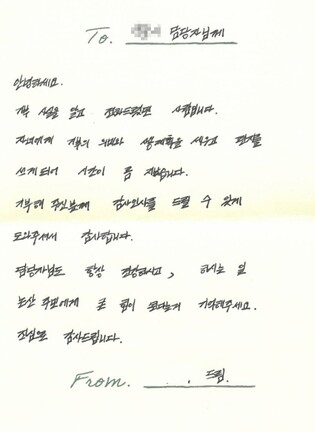 To. 담당자님께
안녕하세요.
기부 사실을 알고 전화드렸던 사람입니다.
자녀에게 기부의 의미와 계획을 세우고 편지를
쓰게되어 시간이 좀 지났습니다.
기부해 주신분께 감사인사를 드릴 수 있게
도와주셔서 감사합니다.
담당자님도 항상 건강하시고, 하시는 일
논산 주민에게 큰 힘이 된다는걸 기억해주세요.
진심으로 감사드립니다.
From. 드림.